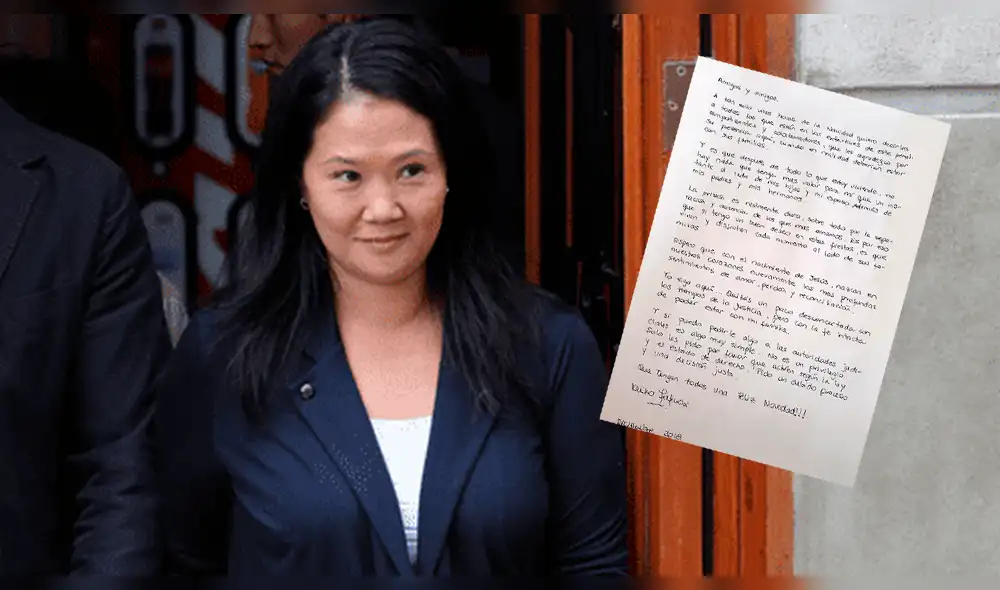 Amigos y amigas,
A tan solo unas horas de la Navidad quiero decirles
a todos los que están en los exteriores de este penal:
simpatizantes y colaboradores, que les agradezco por
su presencia aquí, cuando en realidad deberían estar
con sus familias.
Y es que después de todo lo que estoy viviendo, no
hay nada que tenga más valor para mí que un ins-
tante al lado de mis hijas y mi esposo. Además de
mis padres y mis hermanos.
La prisión es realmente dura, sobre todo por la sepa-
ración y ausencia de los que más amamos. Es por eso
que si tengo un buen deseo en estas fiestas es que
vivan y disfruten cada momento al lado de sus fa-
milias.
Espero que con el nacimiento de Jesús, nazcan en
nuestros corazones nuevamente los más profundos
sentimientos de amor, perdón y reconciliación.
Yo sigo aquí. Quizás un poco desconcertada con
los tiempos de la justicia, pero con la fe intacta
de poder estar con mi familia.
Y si puedo pedirle algo a las autoridades judi-
ciales es algo muy simple. No es un privilegio,
solo les pido por favor que actúen según la ley
y el estado de derecho. Pido un debido proceso
y una decisión justa.
Que tengan todos una Feliz Navidad!!!
Keiko Fujimori
Diciembre 2019